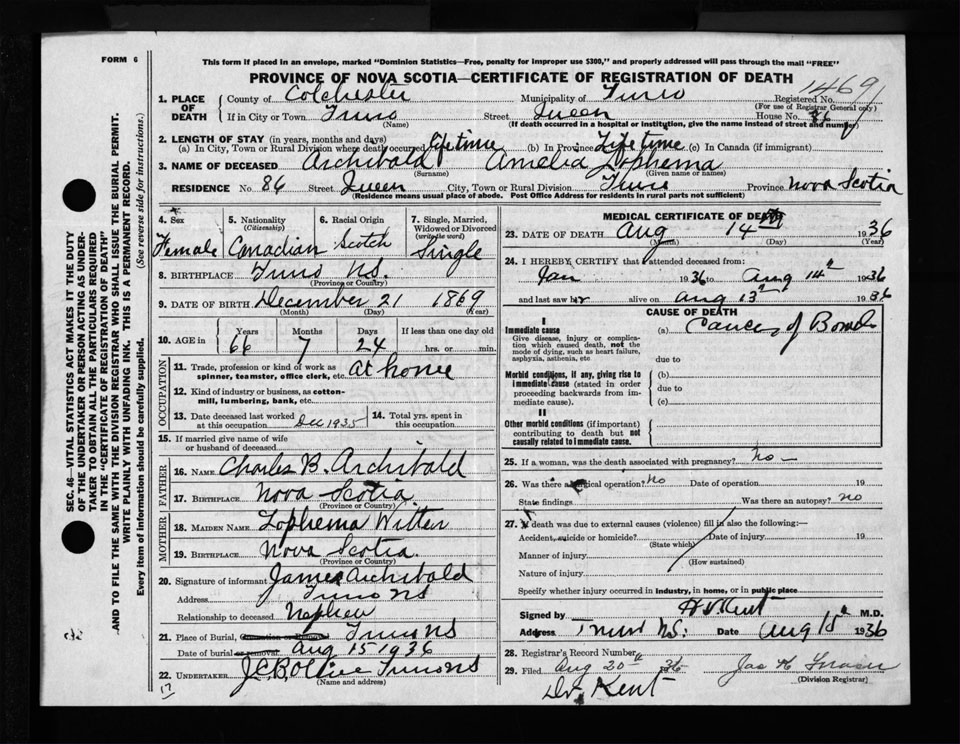 FORM 6
This form if placed in an envelope, marked "Dominion Statistics—Free, penalty for improper use $300," and properly addressed will pass through the mail "FREE"
PROVINCE OF NOVA SCOTIA—CERTIFICATE OF REGISTRATION OF DEATH
1469
1. PLACE OF DEATH
County of Colchester Municipality of Truro Registered No.
(For use of Registrar General only)
If in City or Town Truro Street Queen House No. 86
(Name) (If death occurred in a hospital or institution, give the name instead of street and number)
2. LENGTH OF STAY (in years, months and days)
(a) In City, Town or Rural Division where death occurred lifetime (b) In Province Lifetime (c) In Canada (if immigrant)
3. NAME OF DECEASED Archibald Amelia Lophema
(Surname) (Given name or names)
RESIDENCE No. 86 Street Queen City, Town or Rural Division Truro Province Nova Scotia
(Residence means usual place of abode. Post Office Address for residents in rural parts not sufficient)
4. Sex 5. Nationality 6. Racial Origin 7. Single, Married,
(Citizenship) Widowed or Divorced
(write the word)
Female Canadian Scotch Single
8. BIRTHPLACE Truro NS.
(Province or Country)
9. DATE OF BIRTH December 21 1869
(Month) (Day) (Year)
10. AGE in
Years Months Days If less than one day old
66 7 24 hrs. or min.
OCCUPATION
11. Trade, profession or kind of work as
spinner, teamster, office clerk, etc. at home
12. Kind of industry or business, as cotton-
mill, lumbering, bank, etc.
13. Date deceased last worked
at this occupation Dec 1935
14. Total yrs. spent in
this occupation
15. If married give name of wife
or husband of deceased
FATHER
16. NAME Charles B. Archibald
17. BIRTHPLACE Nova Scotia
(Province or Country)
MOTHER
18. MAIDEN NAME Lophema Witter
19. BIRTHPLACE Nova Scotia.
(Province or Country)
20. Signature of informant James Archibald
Address Truro NS
Relationship to deceased Nephew
21. Place of Burial, Truro NS
Date of burial or removal Aug 15 1936
22. UNDERTAKER Truro NS
(Name and address)
17
MEDICAL CERTIFICATE OF DEATH
23. DATE OF DEATH Aug 14th 1936
(Month) (Day) (Year)
24. I HEREBY CERTIFY that I attended deceased from:
Jan 1936 to Aug 14th 1936
and last saw her alive on Aug 13th 1936
CAUSE OF DEATH
I
Immediate cause
Give disease, injury or complica-
tion which caused death, not the
mode of dying, such as heart failure,
asphyxia, asthenia, etc
(a) Cancer of Bowels
due to
Morbid conditions, if any, giving rise to
immediate cause (stated in order
proceeding backwards from im-
mediate cause).
(b)
due to
(c)
II
Other morbid conditions (if important)
contributing to death but not
causally related to immediate cause.
25. If a woman, was the death associated with pregnancy? no —
26. Was there a surgical operation? no Date of operation 19
State findings Was there an autopsy? no
27. If death was due to external causes (violence) fill in also the following:—
Accident, suicide or homicide? Date of injury 19
(State which)
Manner of injury
(How sustained)
Nature of injury
Specify whether injury occurred in industry, in home, or in public place
Signed by H.V. Kent M.D.
Address Truro N.S. Date Aug 15th 1936
28. Registrar's Record Number
29. Filed Aug 20th 1936 Jas H Fraser
(Division Registrar)
Dr. Kent
SEC. 46—VITAL STATISTICS ACT MAKES IT THE DUTY
OF THE UNDERTAKER OR PERSON ACTING AS UNDER-
TAKER TO OBTAIN ALL THE PARTICULARS REQUIRED
IN THE "CERTIFICATE OF REGISTRATION OF DEATH"
AND TO FILE THE SAME WITH THE DIVISION REGISTRAR WHO SHALL ISSUE THE BURIAL PERMIT.
WRITE PLAINLY WITH UNFADING INK. THIS IS A PERMANENT RECORD.
Every item of information should be carefully supplied. (See reverse side for instructions.)